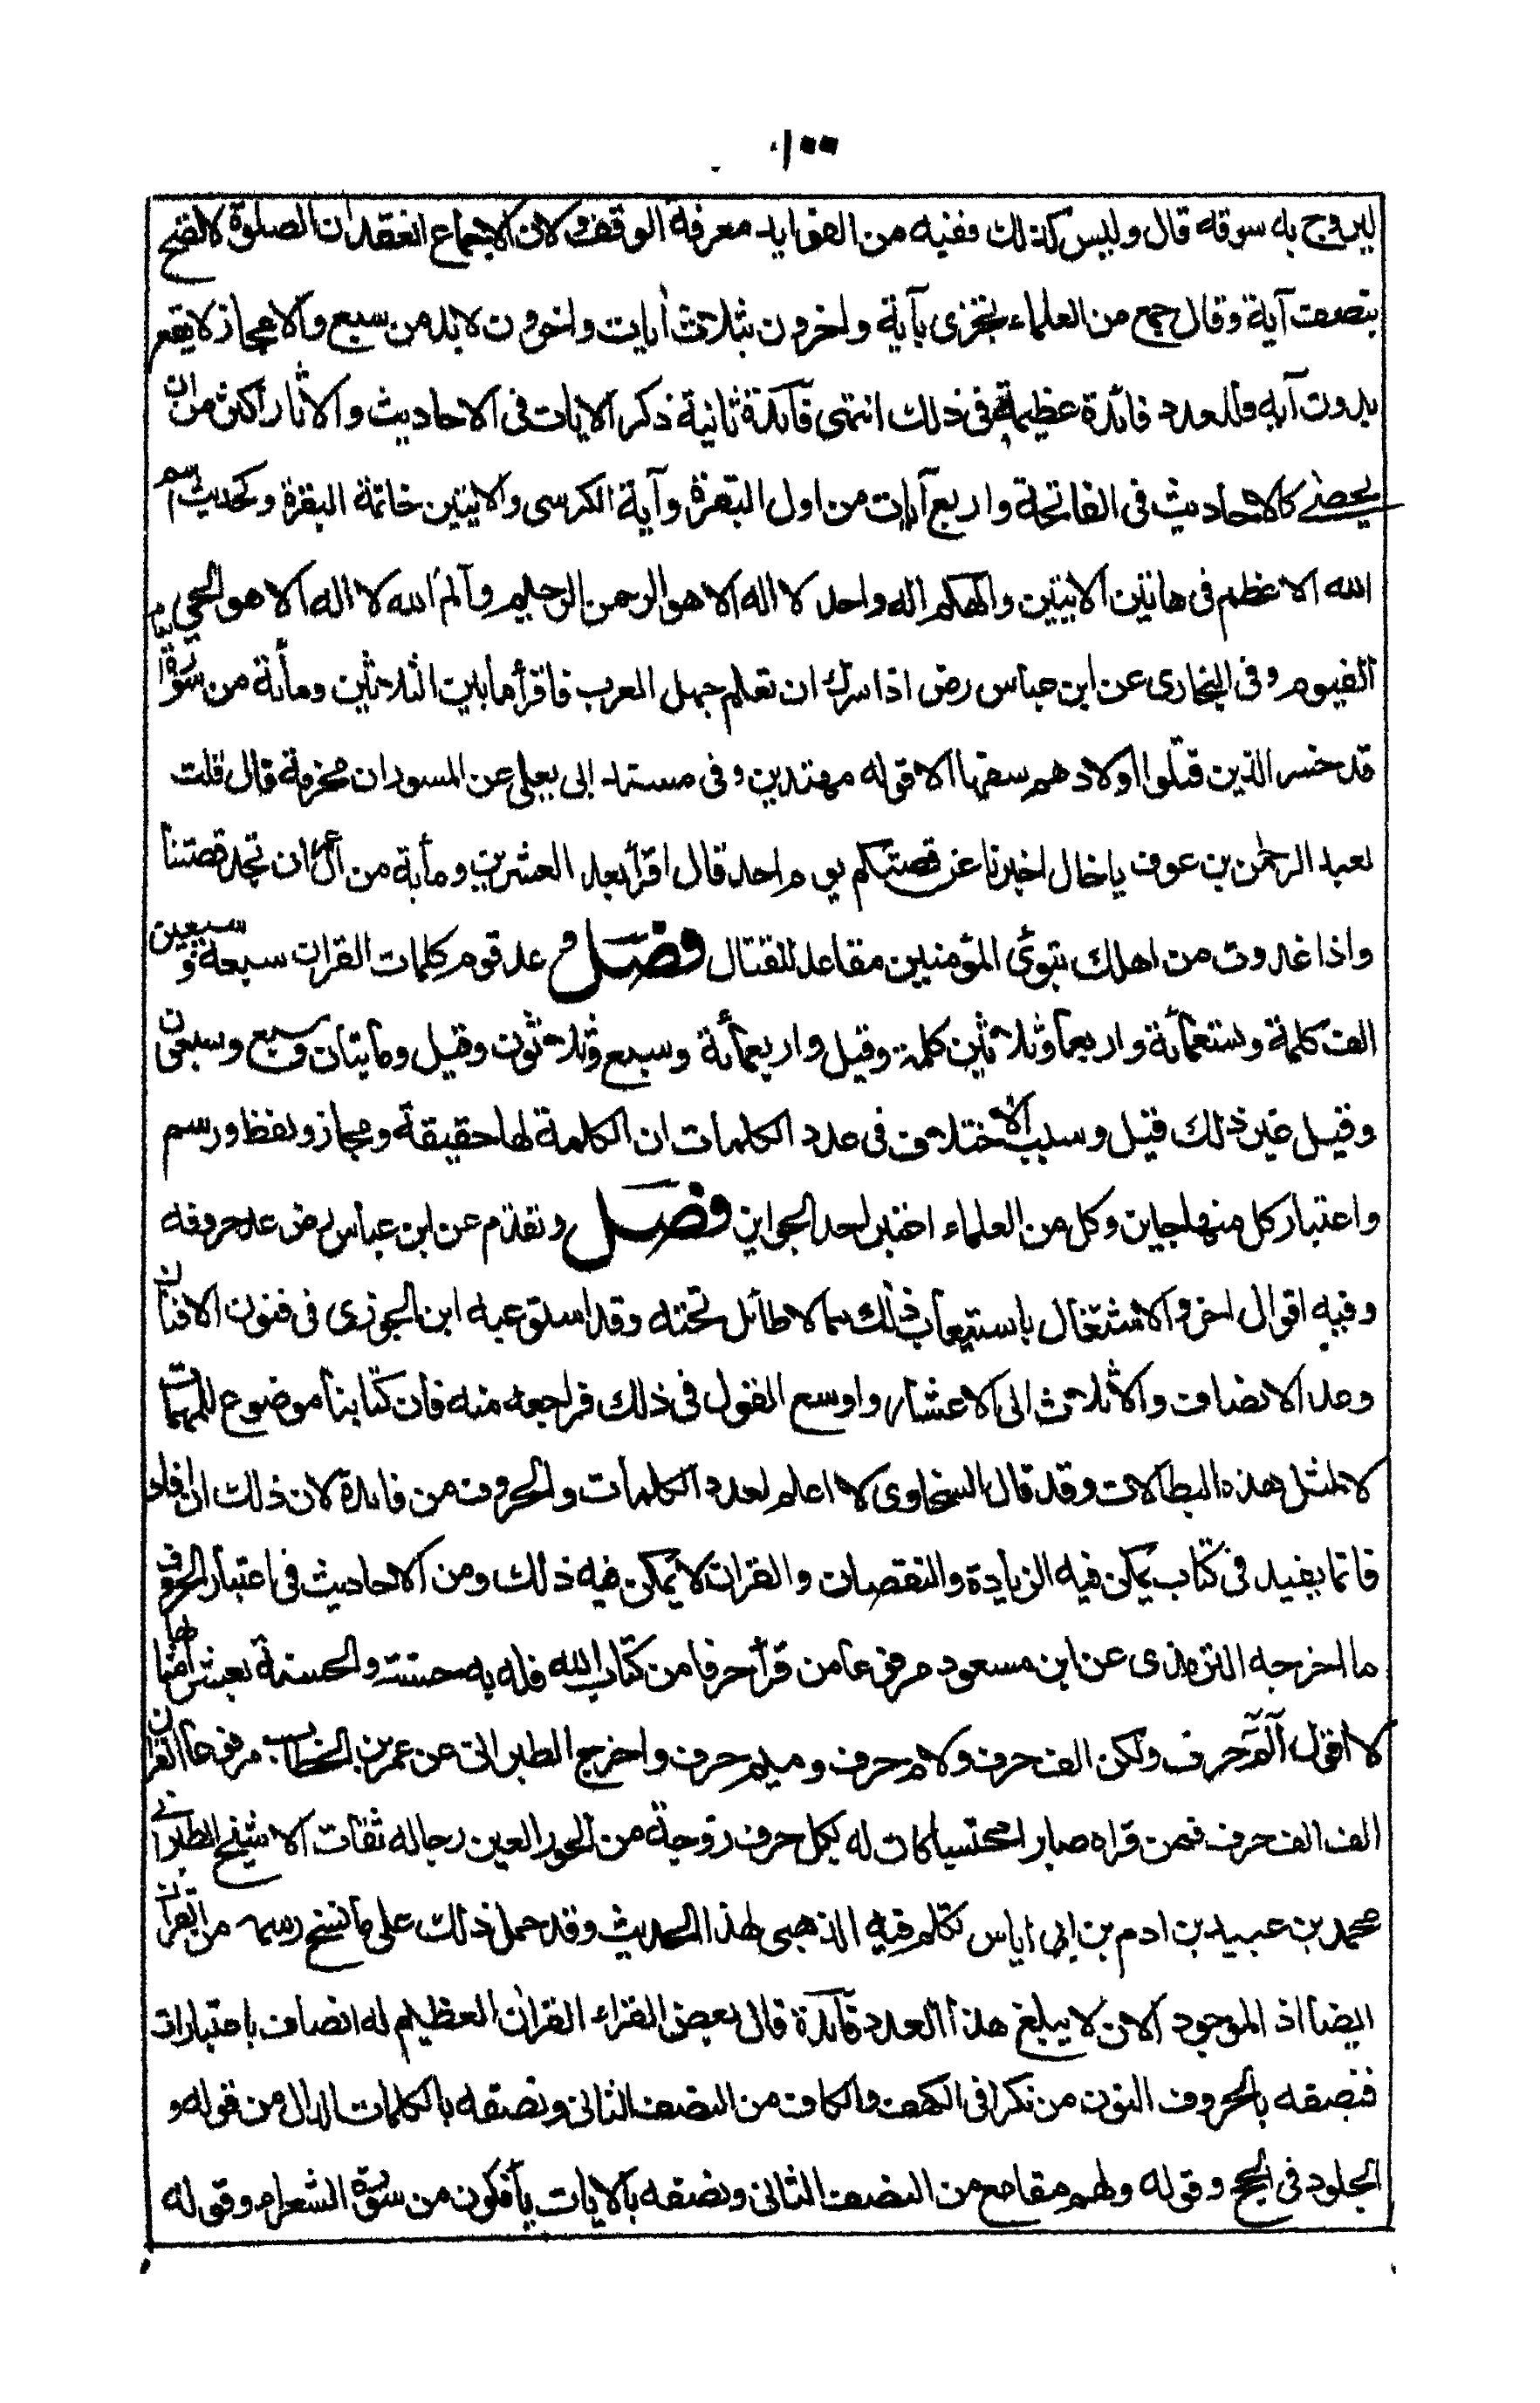 ١٠٠
ليروج به سوقه قال وليس كذلك ففيه من الفوايد معرفة الوقف ولان الاجماع انعقد ان الصلوة لا تصح
بنصف آية وقال جمع من العلماء تجزى بآية واخرون بثلاث أيات واخرون لا بد من سبع والاعجاز لا يقع
بدون آية فللعدد فائدة عظيمة فى ذلك انتهى فآئدة ثانية ذكر الايات فى الاحاديث والاثار أكثر من ان
يحصى كالاحاديث فى الفاتحة واربع آيات من اول البقرة وآية الكرسى والايتين خاتمة البقرة وكحديث اسم
الله الاعظم فى هاتين الايتين والهكم اله واحد لا اله الا هو الرحمن الرحيم وآلم الله لا اله الا هو الحي
القيوم وفى البخارى عن ابن عباس رض اذا سرك ان تعلم جهل العرب فاقرأ ما بين الثلاثين ومأئة من سورة
قد خسر الذين قتلوا اولادهم سفها الا قوله مهتدين وفى مسند ابى يعلى عن المسور ان مخرمة قال قلت
لعبد الرحمن بن عوف يا خال اخبرنا عن قصتكم يوم احد قال اقرأ بعد العشرين ومأية من آل عمران تجد قصتنا
واذا غدوت من اهلك تبوئ المؤمنين مقاعد للقتال فصل و عد قوم كلمات القران سبعة و سبعين
الف كلمة وستعمأئة واربعا وثلاثين كلمة وقيل واربعمأئة وسبع وثلاثون وقيل ومأيتان وسبع وسبعون
وقيل غير ذلك قيل وسبب الاختلاف فى عدد الكلمات ان الكلمة لها حقيقة ومجاز ولفظ ورسم
واعتبار كل منها جايز وكل من العلماء اعتبر احد الجوايز فصل وتقدم عن ابن عباس رض عد حروفه
وفيه اقوال اخر والاشتغال باستيعاب ذلك مما لا طائل تحته وقد استوعبه ابن الجوزى فى فنون الافنان
وعد الانصاف والأثلاث الى الاعشار واوسع القول فى ذلك فراجعه منه فان كتابنا موضوع للمهمات
لا لمثل هذه البطالات وقد قال السخاوى لا اعلم لعدد الكلمات والحروف من فائدة لان ذلك ان افاد
فانما يفيد فى كتاب يمكن فيه الزيادة والنقصان والقران لا يمكن فيه ذلك ومن الاحاديث فى اعتبار الحروف
ما اخرجه الترمذى عن ابن مسعود مرفوعا من قرأ حرفا من كتاب الله فله به حسنة والحسنة بعشر أمثالها
لا اقول آلم حرف ولكن الف حرف ولام حرف وميم حرف واخرج الطبرانى عن عمر بن الخطاب مرفوعاً القران
الف الف حرف فمن قراه صابرا محتسبا كان له بكل حرف زوجة من الحور العين رجاله ثقات الا شيخ الطبرانى
محمد بن عبيد بن ادم بن ابى اياس تكلم فيه الذهبى لهذا الحديث وقد حمل ذلك على ما نسخ رسمه من القران
ايضا اذ الموجود الان لا يبلغ هذا العدد فآئدة قال بعض القراء القران العظيم له انصاف باعتبارات
فنصفه بالحروف النون من نكرا فى الكهف والكاف من النصف الثانى ونصفه بالكلمات الدال من قوله و
الجلود فى الحج وقوله ولهم مقامع من النصف الثانى ونصفه بالايات يأفكون من سورة الشعراء وقوله